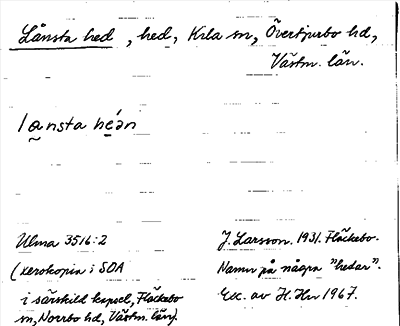 Lånsta hed, hed, Kila sn, Övertjurbo hd,
Västm. län.
lånsta hé̱ən
Ulma 3516:2
(xerokopia i SOA
i särskild kapsel, Fläckebo
sn, Norrbo hd, Västm. län).
J. Larsson. 1931. Fläckebo.
Namn på några "hedar".
Exc. av H. Hn 1967.